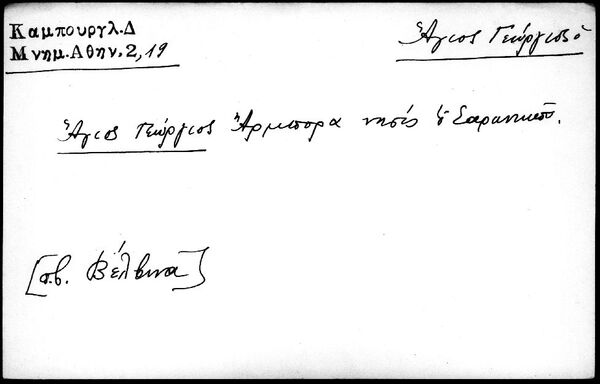 Καμπουργλ.Δ
Μνημ.Αθην.2,19
Ἅγιος Γεώργιος ὁ
Ἅγιος Γεώργιος Ἀρμπορα νησίς τοῦ Σαρωνικοῦ.
[σ.β. Βέλβινα]